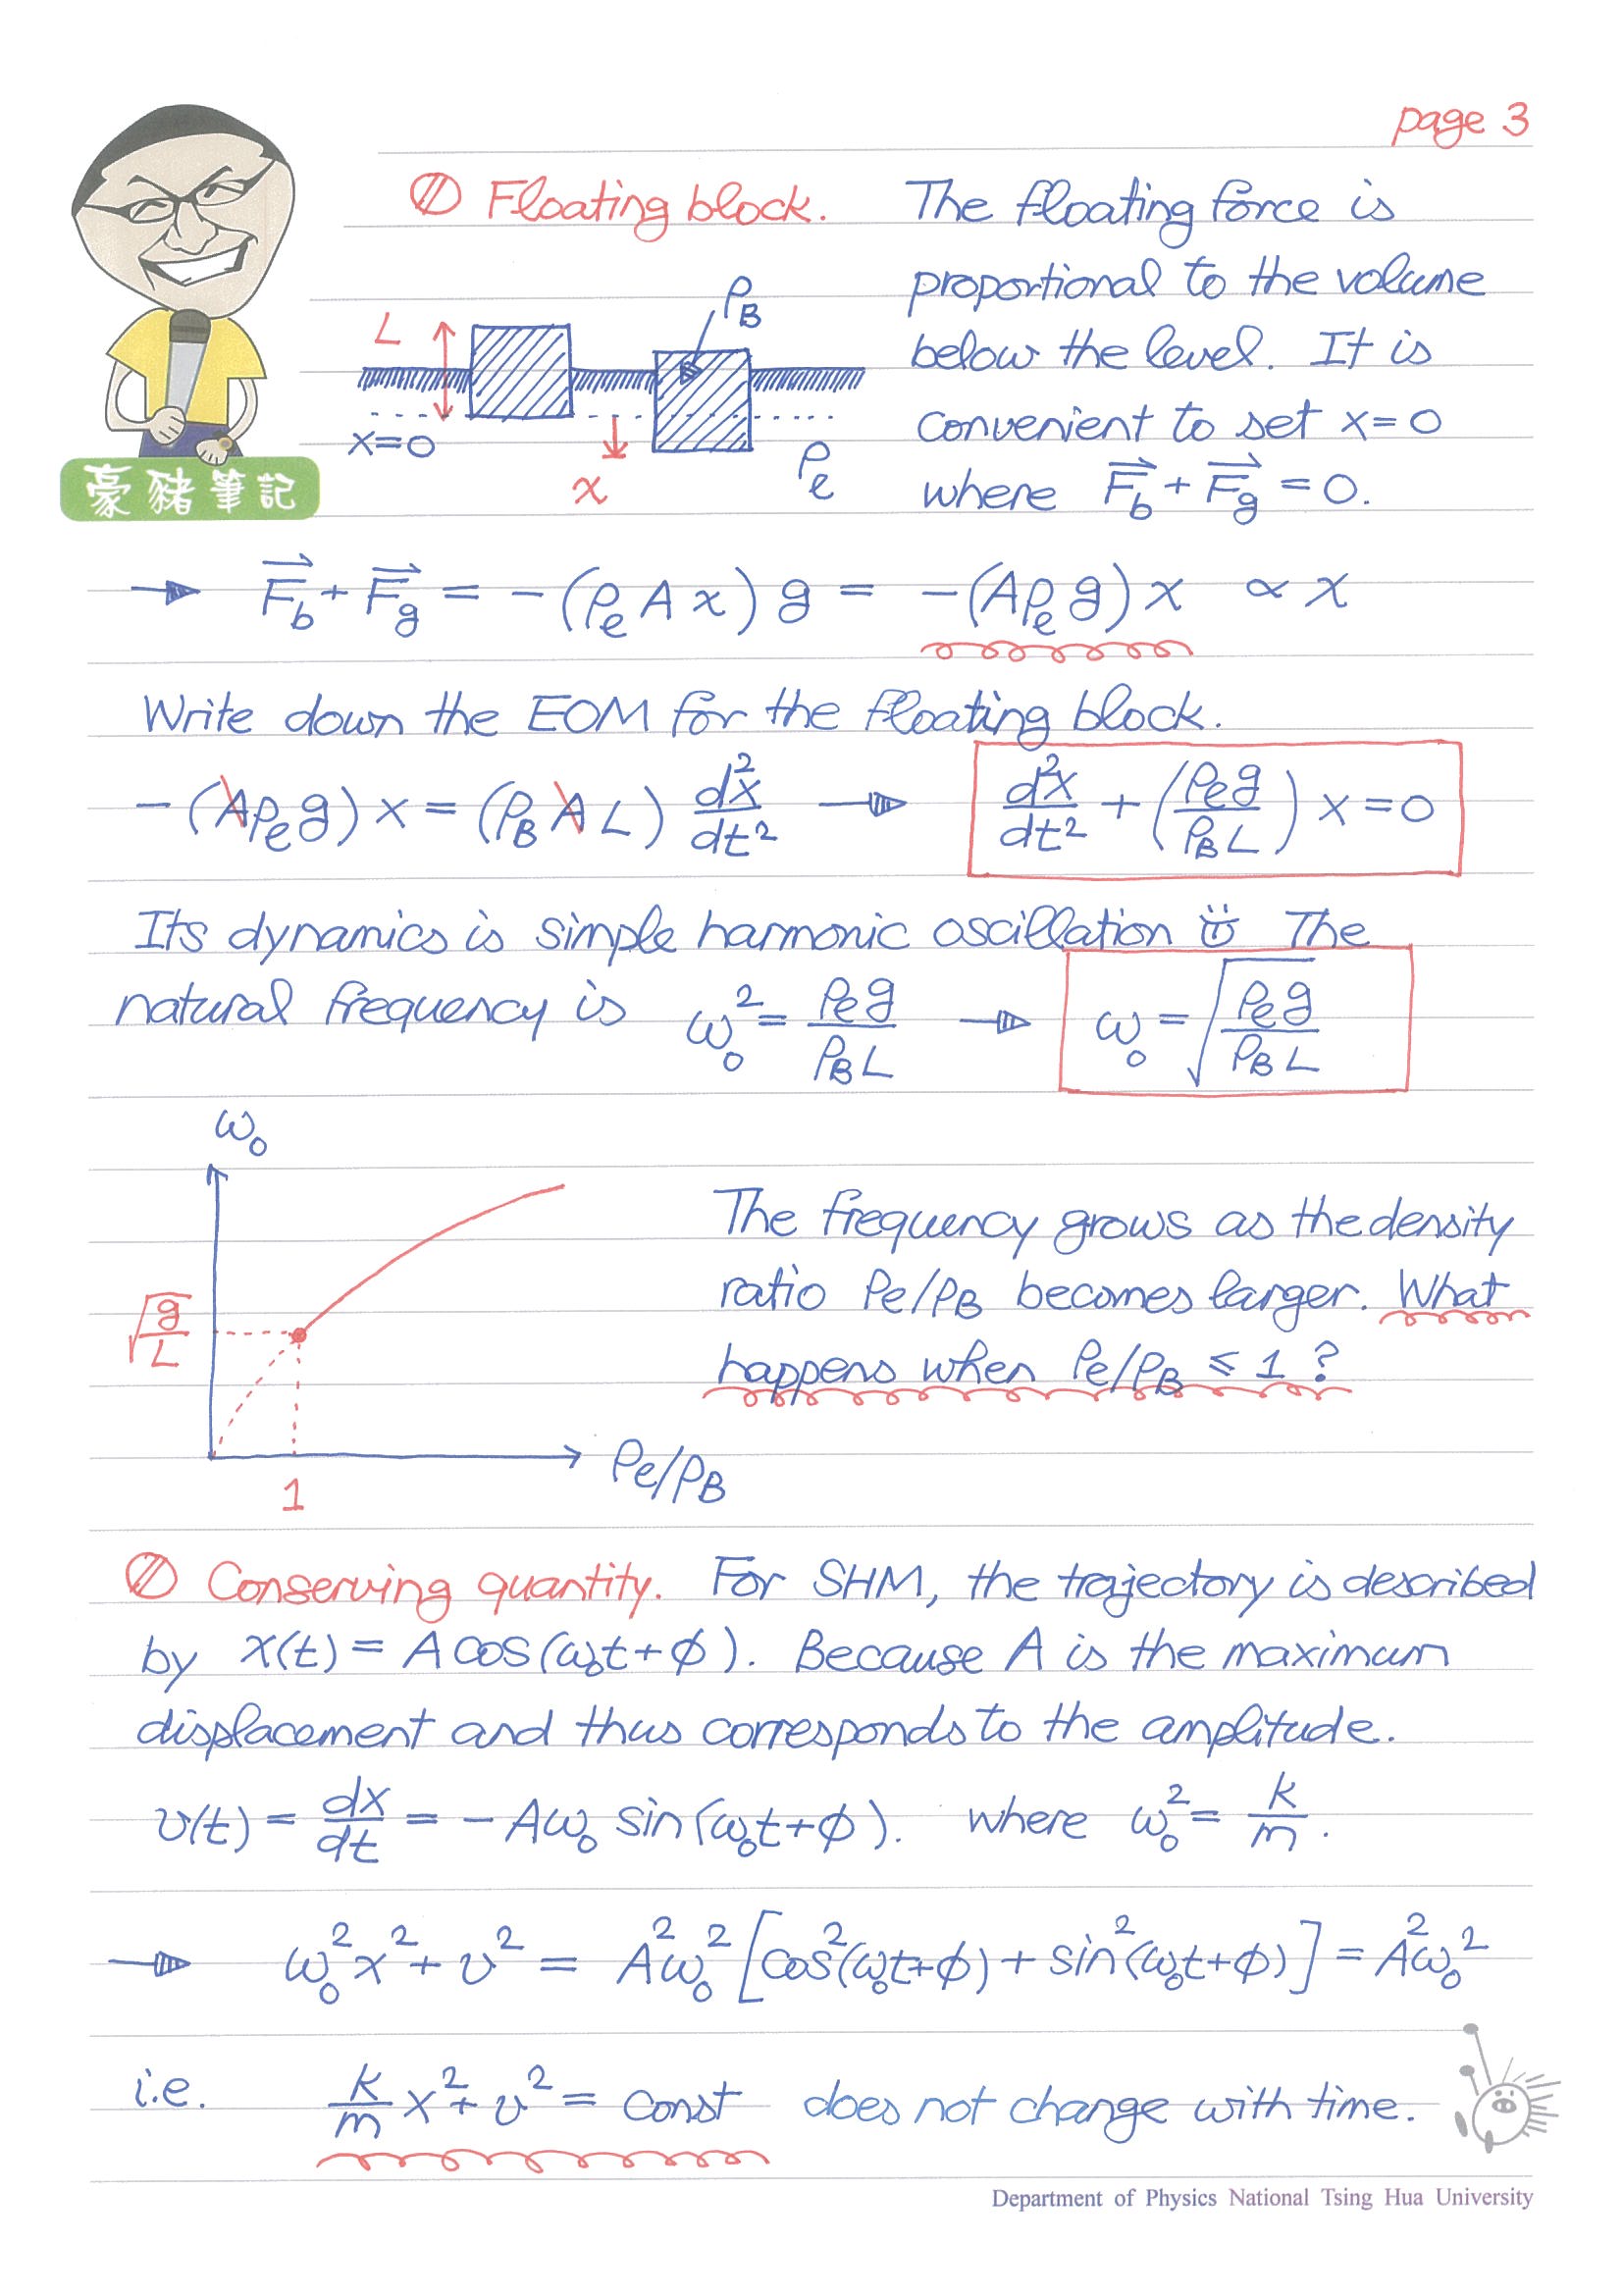 page 3
Floating block. The floating force is
proportional to the volume
below the level. It is
convenient to set x=0
where F⃗_b + F⃗_g = 0.
L
ρ_B
x=0
x
ρ_e
豪豬筆記
F⃗_b + F⃗_g = -(ρ_e A x) g = -(Aρ_e g) x ∝ x
Write down the EOM for the floating block.
-(Aρ_e g) x = (ρ_B A L) d²x/dt² → d²x/dt² + (ρ_e g/ρ_B L) x = 0
Its dynamics is simple harmonic oscillation ☺ The
natural frequency is ω₀² = ρ_e g/ρ_B L → ω₀ = √(ρ_e g/ρ_B L)
ω₀
√(g/L)
1
ρ_e/ρ_B
The frequency grows as the density
ratio ρ_e/ρ_B becomes larger. What
happens when ρ_e/ρ_B ≤ 1 ?
Conserving quantity. For SHM, the trajectory is described
by x(t) = A cos(ω₀t+φ). Because A is the maximum
displacement and thus corresponds to the amplitude.
v(t) = dx/dt = -Aω₀ sin(ω₀t+φ). where ω₀² = k/m.
→ ω₀²x² + v² = A²ω₀² [cos²(ω₀t+φ) + sin²(ω₀t+φ)] = A²ω₀²
i.e. k/m x² + v² = const does not change with time.
Department of Physics National Tsing Hua University